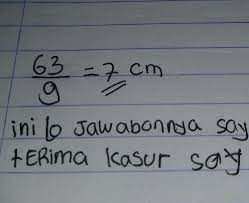 63/9 = 7 cm
ini lo Jawabannya say
tERima kasur say